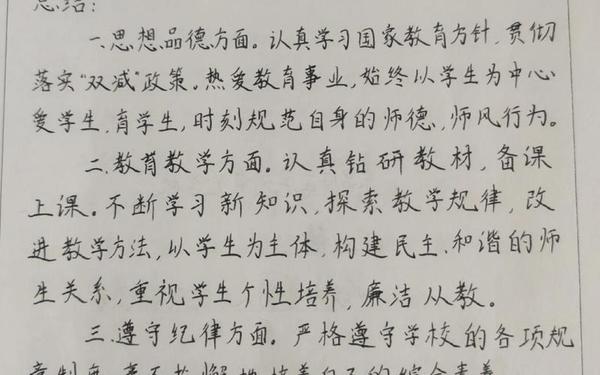 总结：
一.思想品德方面。认真学习国家教育方针，贯彻
落实“双减”政策。热爱教育事业，始终以学生为中心
爱学生，育学生，时刻规范自身的师德，师风行为。
二.教育教学方面。认真钻研教材，备课
上课。不断学习新知识，探索教学规律，改
进教学方法，以学生为主体，构建民主.和谐的师
生关系，重视学生个性培养，廉洁从教。
三.遵守纪律方面。严格遵守学校的各项规
章制度，